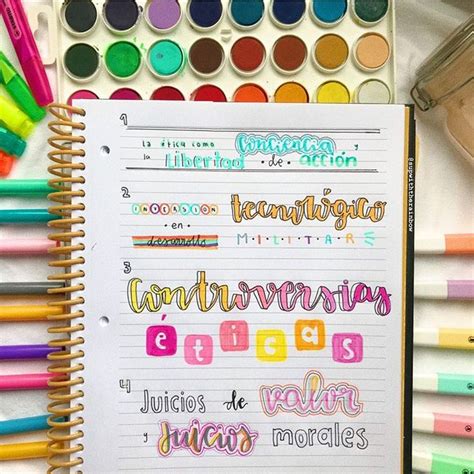 1
la ética como conciencia y
la Libertad de acción
2
inversión tecnológico
en
desarrollo MILITAR
3
controversias
éticas
4
Juicios de valor
y juicios morales
@supwiththerainbow